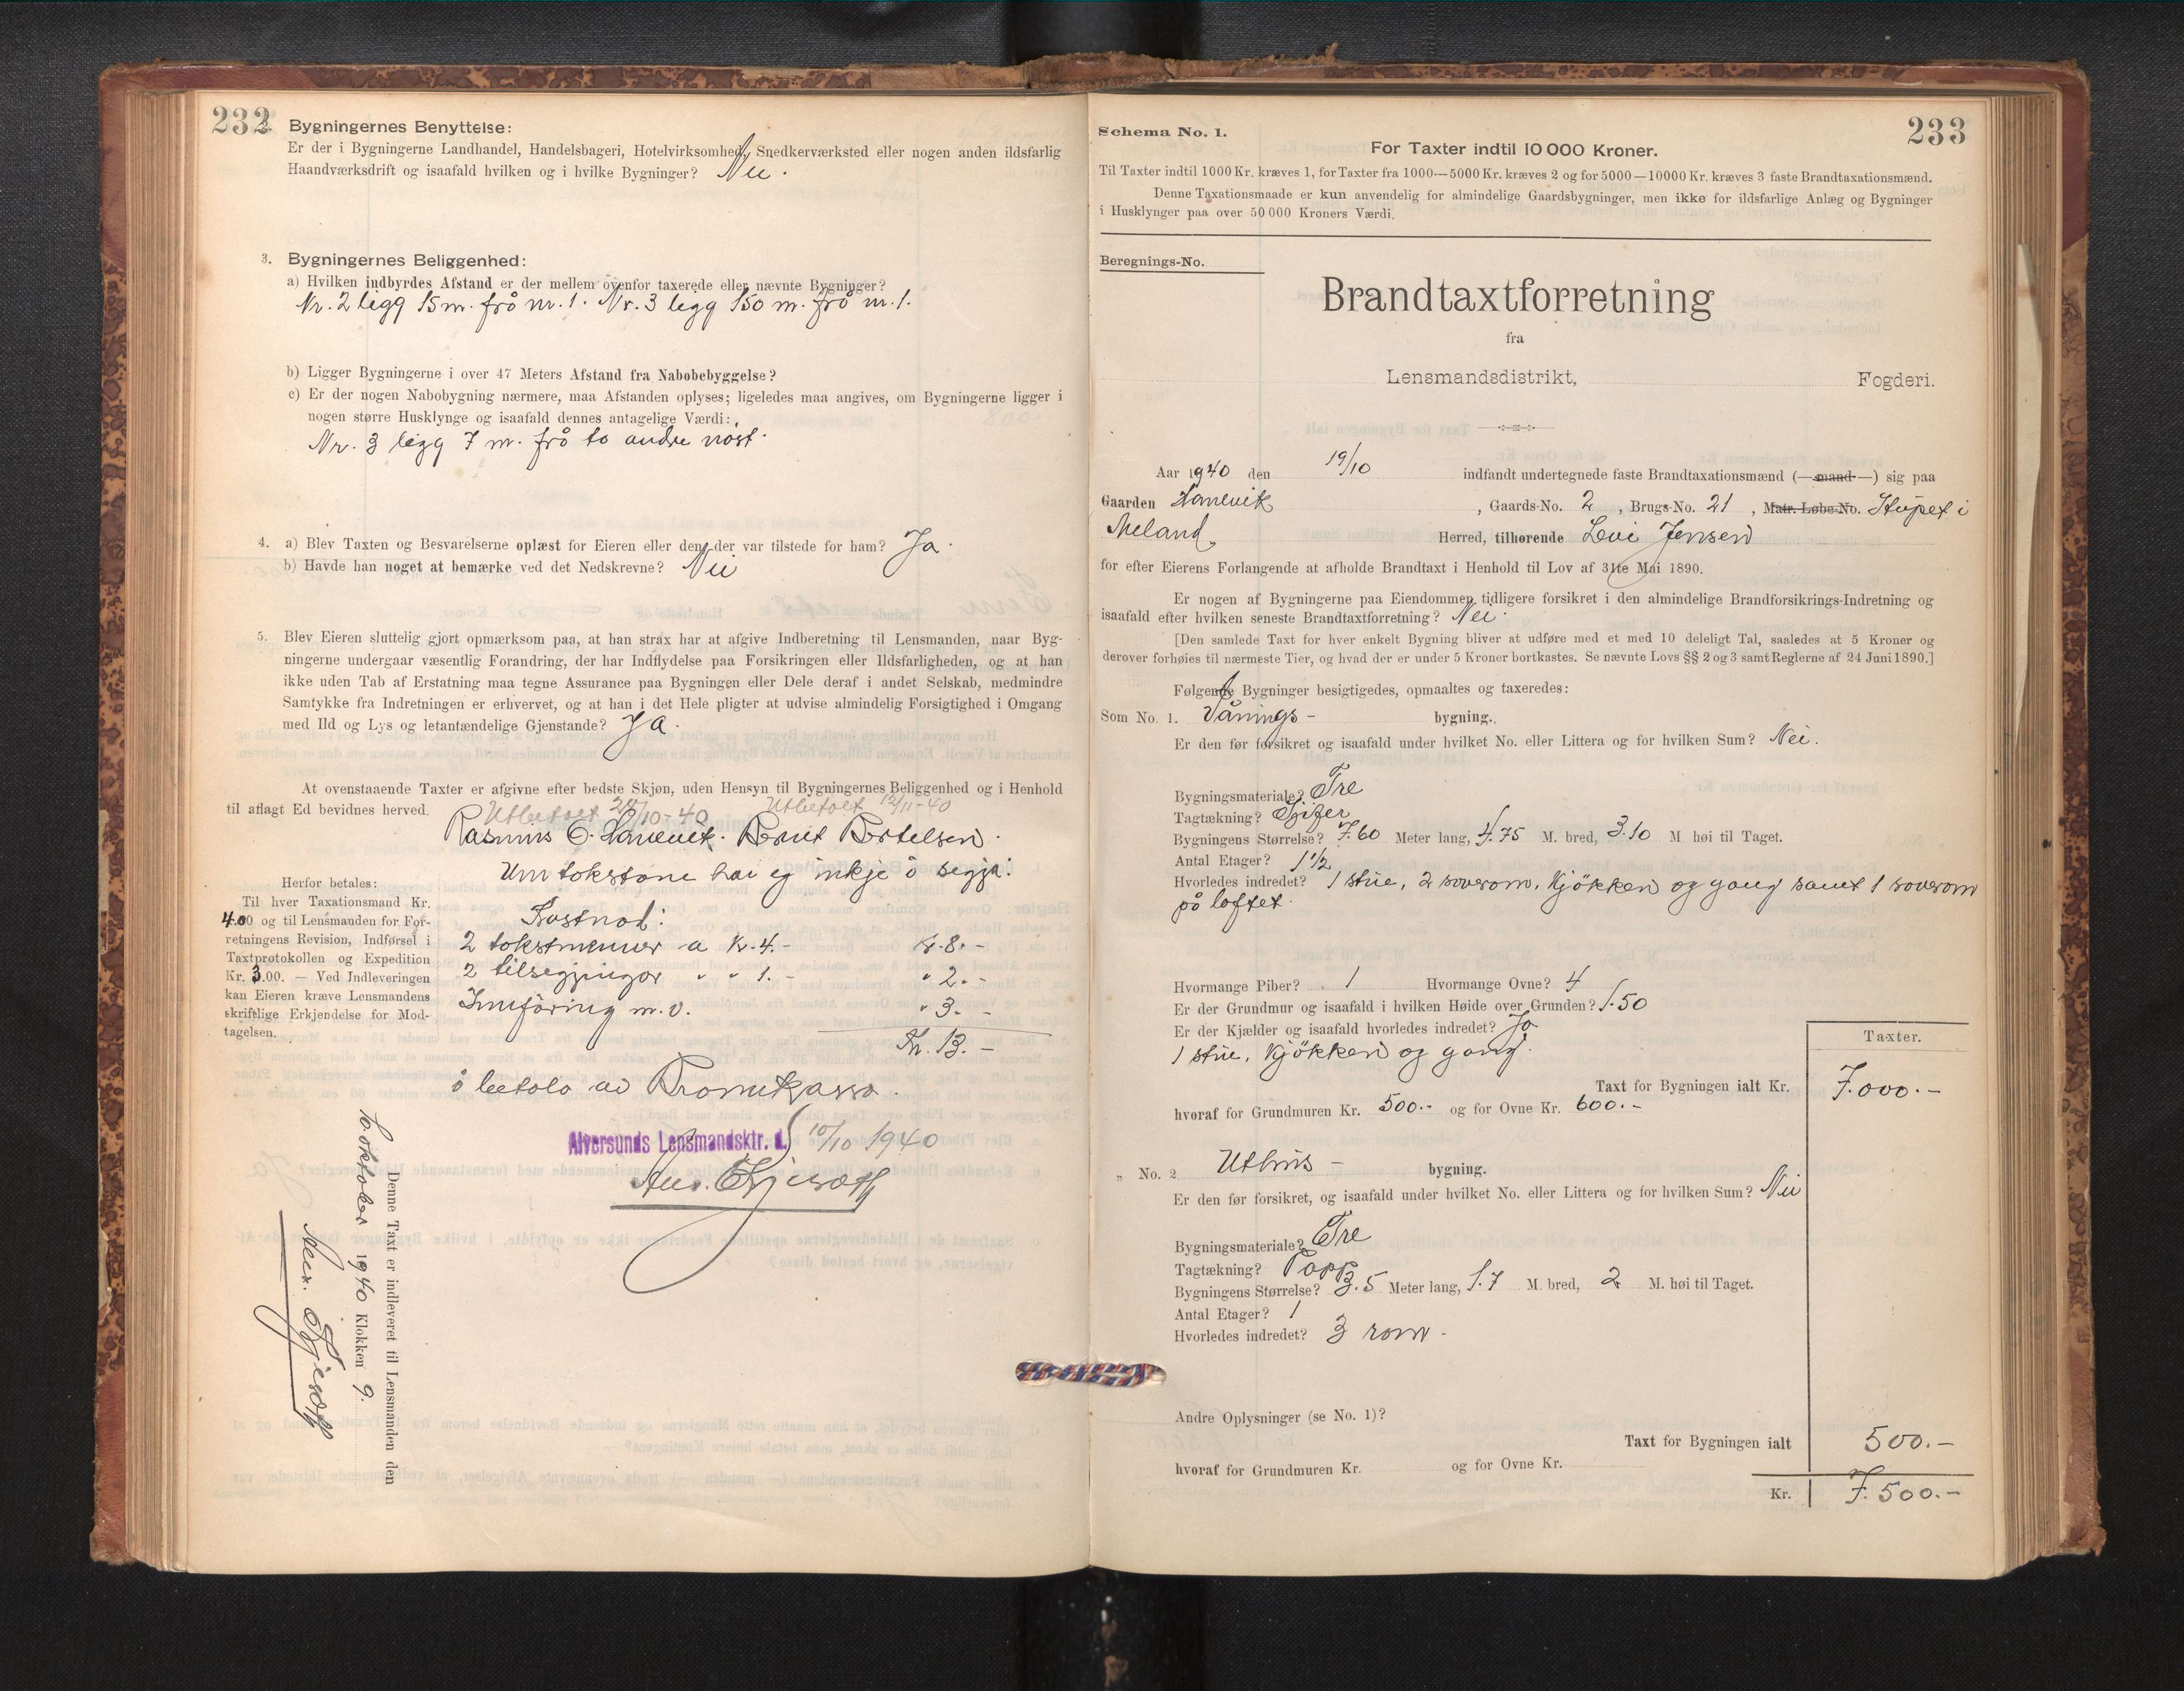 232
2. Bygningernes Benyttelse:
Er der i Bygningerne Landhandel, Handelsbageri, Hotelvirksomhed, Snedkerværksted eller nogen anden ildsfarlig
Haandværksdrift og isaafald hvilken og i hvilke Bygninger? Nei.
3. Bygningernes Beliggenhed:
a) Hvilken indbyrdes Afstand er der mellem ovenfor taxerede eller nævnte Bygninger?
Nr. 2 legg 15 m. frå nr. 1. Nr. 3 legg 150 m. frå nr. 1.
b) Ligger Bygningerne i over 47 Meters Afstand fra Nabobebyggelse?
c) Er der nogen Nabobygning nærmere, maa Afstanden oplyses; ligeledes maa angives, om Bygningerne ligger i
nogen større Husklynge og isaafald dennes antagelige Værdi:
Nr. 3 legg 7 m. frå to andre nöst.
4. a) Blev Taxten og Besvarelserne oplæst for Eieren eller den, der var tilstede for ham? Ja.
b) Havde han noget at bemærke ved det Nedskrevne? Nei
5. Blev Eieren sluttelig gjort opmærksom paa, at han strax har at afgive Indberetning til Lensmanden, naar Byg-
ningerne undergaar væsentlig Forandring, der har Indflydelse paa Forsikringen eller Ildsfarligheden, og at han
ikke uden Tab af Erstatning maa tegne Assurance paa Bygningen eller Dele deraf i andet Selskab, medmindre
Samtykke fra Indretningen er erhvervet, og at han i det Hele pligter at udvise almindelig Forsigtighed i Omgang
med Ild og Lys og letantændelige Gjenstande? Ja.
At ovenstaaende Taxter er afgivne efter bedste Skjøn, uden Hensyn til Bygningernes Beliggenhed og i Henhold
til aflagt Ed bevidnes herved.
Utbetalt 24/10-40 Utbetalt 12/11-40
Rasmus O. Hanevik. Berit Bertelsen.
Um takstane har eg inkje å segja.
Herfor betales:
Til hver Taxationsmand Kr.
4.00 og til Lensmanden for For-
retningens Revision, Indførsel i
Taxtprotokollen og Expedition
Kr. 3.00. — Ved Indleveringen
kan Eieren kræve Lensmandens
skriftlige Erkjendelse for Mod-
tagelsen.
Kostnad:
2 takstmenner a kr. 4.- kr. 8.-
2 tilsegjingar " " 1.- " 2.-
Innföring m.v. " 3.-
Kr. 13.-
å betala av Brannkassa.
Alversunds Lensmandsktr. d. 10/10 1940
Denne Taxt er indleveret til Lensmanden den
10. oktober 1940 Klokken 9.
233
Schema No. 1.
For Taxter indtil 10 000 Kroner.
Til Taxter indtil 1000 Kr. kræves 1, for Taxter fra 1000—5000 Kr. kræves 2 og for 5000—10000 Kr. kræves 3 faste Brandtaxationsmænd.
Denne Taxationsmaade er kun anvendelig for almindelige Gaardsbygninger, men ikke for ildsfarlige Anlæg og Bygninger
i Husklynger paa over 50 000 Kroners Værdi.
Beregnings-No.
Brandtaxtforretning
fra
Lensmandsdistrikt, Fogderi.
Aar 1940 den 19/10 indfandt undertegnede faste Brandtaxationsmænd (—mand—) sig paa
Gaarden Hanevik, Gaards-No. 2, Brugs-No. 21, Matr. Løbe-No. Stupet i
Meland Herred, tilhørende Levi Jensen
for efter Eierens Forlangende at afholde Brandtaxt i Henhold til Lov af 31te Mai 1890.
Er nogen af Bygningerne paa Eiendommen tidligere forsikret i den almindelige Brandforsikrings-Indretning og
isaafald efter hvilken seneste Brandtaxtforretning? Nei
[Den samlede Taxt for hver enkelt Bygning bliver at udføre med et med 10 deleligt Tal, saaledes at 5 Kroner og
derover forhøies til nærmeste Tier, og hvad der er under 5 Kroner bortkastes. Se nævnte Lovs §§ 2 og 3 samt Reglerne af 24 Juni 1890.]
Følgende Bygninger besigtigedes, opmaaltes og taxeredes:
Som No. 1. Vånings- bygning.
Er den før forsikret og isaafald under hvilket No. eller Littera og for hvilken Sum? Nei.
Bygningsmateriale? Tre
Tagtækning? Skifer
Bygningens Størrelse? 7.60 Meter lang, 4.75 M. bred, 3.10 M. høi til Taget.
Antal Etager? 1 1/2
Hvorledes indredet? 1 stue, 2 soverom, kjökken og gang samt 1 soverom
på loftet.
Hvormange Piber? 1 Hvormange Ovne? 4
Er der Grundmur og isaafald i hvilken Høide over Grunden? 1.50
Er der Kjælder og isaafald hvorledes indredet? Ja
1 stue, kjökken og gang.
Taxter.
Taxt for Bygningen ialt Kr. 7.000.-
hvoraf for Grundmuren Kr. 500.- og for Ovne Kr. 600.-
„ No. 2 Uthus- bygning.
Er den før forsikret, og isaafald under hvilket No. eller Littera og for hvilken Sum? Nei
Bygningsmateriale? Tre
Tagtækning? Papp
Bygningens Størrelse? 3.5 Meter lang, 1.7 M. bred, 2 M. høi til Taget.
Antal Etager? 1
Hvorledes indredet? 3 rom.
Andre Oplysninger (se No. 1)?
Taxt for Bygningen ialt 500.-
hvoraf for Grundmuren Kr. og for Ovne Kr.
Kr. 7.500.-